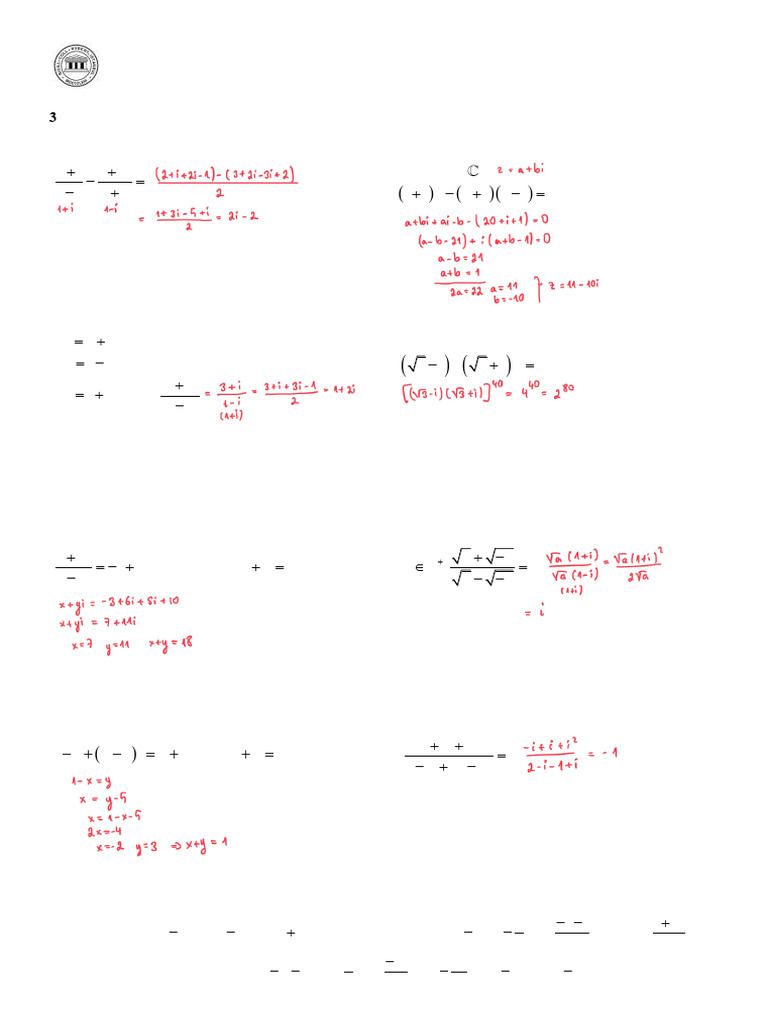 3
+ − + = (2+i+2i-1)-(3+2i-3i+2) / 2
− +
1+i 1-i
= 1+3i-5+i / 2 = 2i-2
ℂ z=a+bi
( + ) −( + )( − )=
a+bi+ai-b-(20+i+1)=0
(a-b-21)+i(a+b-1)=0
a-b=21
a+b=1
2a=22 a=11 b=-10 } z=11-10i
= +
= −
= + + / − = 3+i / 1-i = 3+i+3i-1 / 2 = 1+2i
(1+i)
(√ − ) (√ + ) =
[(√3-i)(√3+i)]^40 = 4^40 = 2^80
+ / − = − + + =
x+yi = -3+6i+5i+10
x+yi = 7+11i
x=7 y=11 x+y=18
∈ + √ +√− / √ −√− = √a(1+i) / √a(1-i) = √a(1+i)² / 2√a
(1+i)
= i
− +( − ) = + + =
1-x=y
x = y-5
x=1-x-5
2x=-4
x=-2 y=3 ⇒ x+y=1
+ + / − + − = -i+i+i² / 2-i-1+i = -1
− − + − − − − +
− − − − − − −